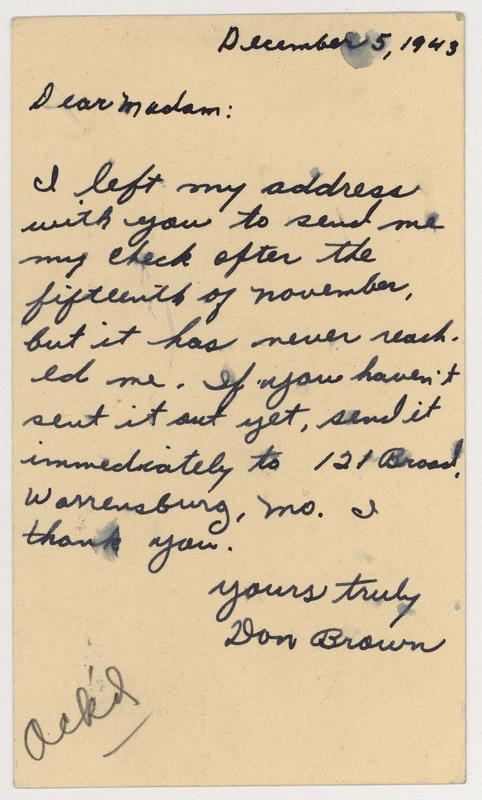 December 5, 1943
Dear Madam:
I left my address
with you to send me
my check after the
fifteenth of November,
but it has never reach-
ed me. If you haven't
sent it out yet, send it
immediately to 121 Broad,
Warrensburg, Mo. I
thank you.
Yours truly
Don Brown
Ack'd